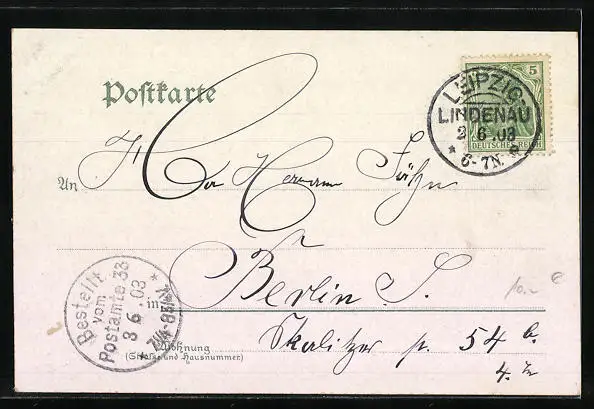 Postkarte
5
DEUTSCHES REICH
LEIPZIG-
LINDENAU
2 6 03
* 6-7N. *
An Herrn Hermann
in Berlin S.
Wohnung
(Straße und Hausnummer)
Skalitzer 54 b.
Bestellt
vom
Postamte 33
3 6 03